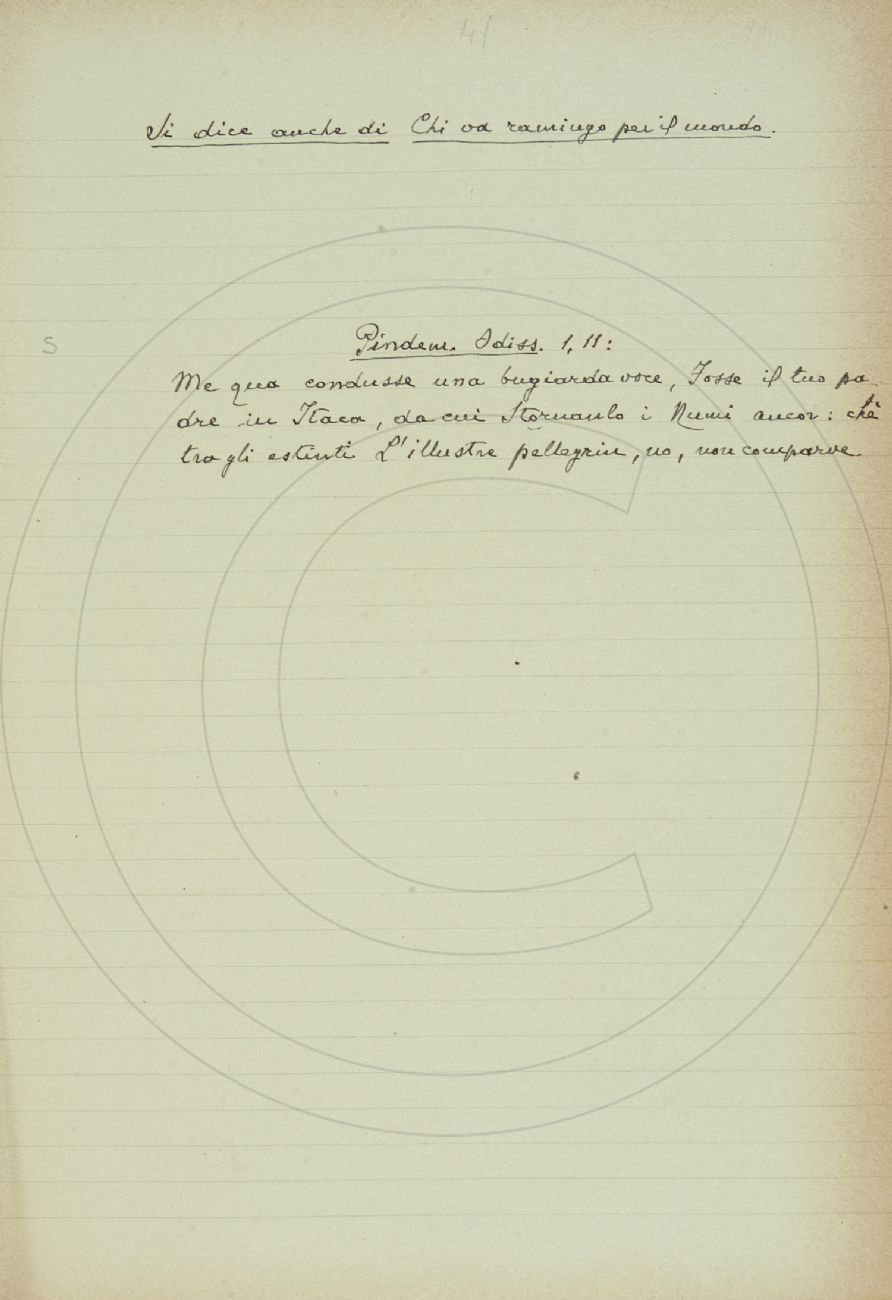 Si dice anche di Chi va ramingo per il mondo.
S
Pindem. Odiss. 1, 11:
Me qua condusse una bugiarda voce, Fosse il tuo pa-
dre in Itaca, da cui Stornanlo i Numi ancor: chè
tra gli estinti L'illustre pellegrin, no, non comparve